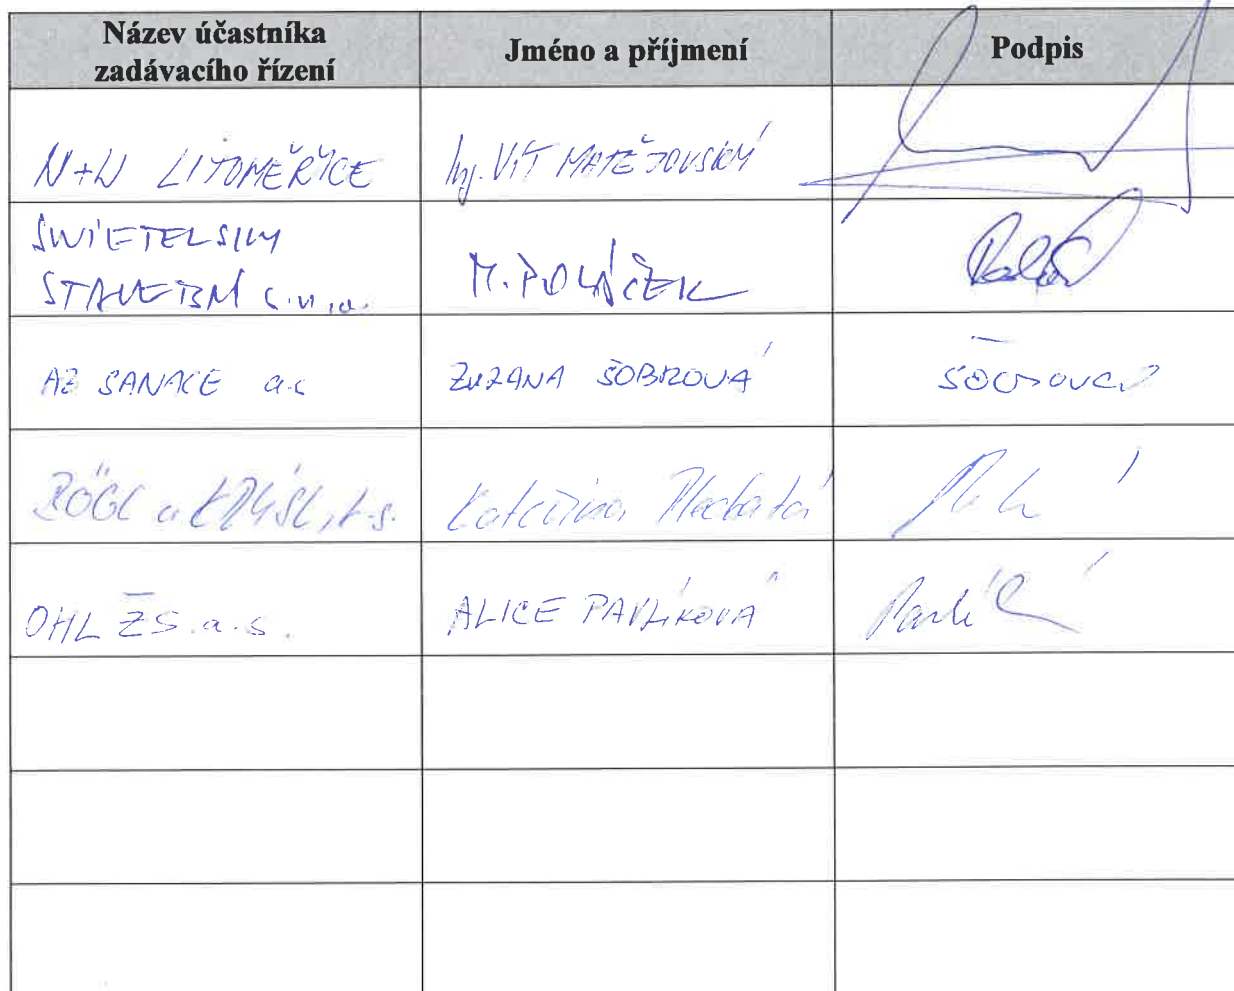 Název účastníka
zadávacího řízení
Jméno a příjmení
Podpis
N+N LITOMĚŘICE
Ing. VÍT MATĚJOVSKÝ
SWIETELSKY
STAVEBNÍ s.r.o.
M. POLÁČEK
AZ SANACE a.s
ZUZANA ŠOBROVÁ
RÖGL a KRÝSL, k.s.
Kateřina Plechatá
OHL ŽS a.s.
ALICE PAVLÍKOVÁ